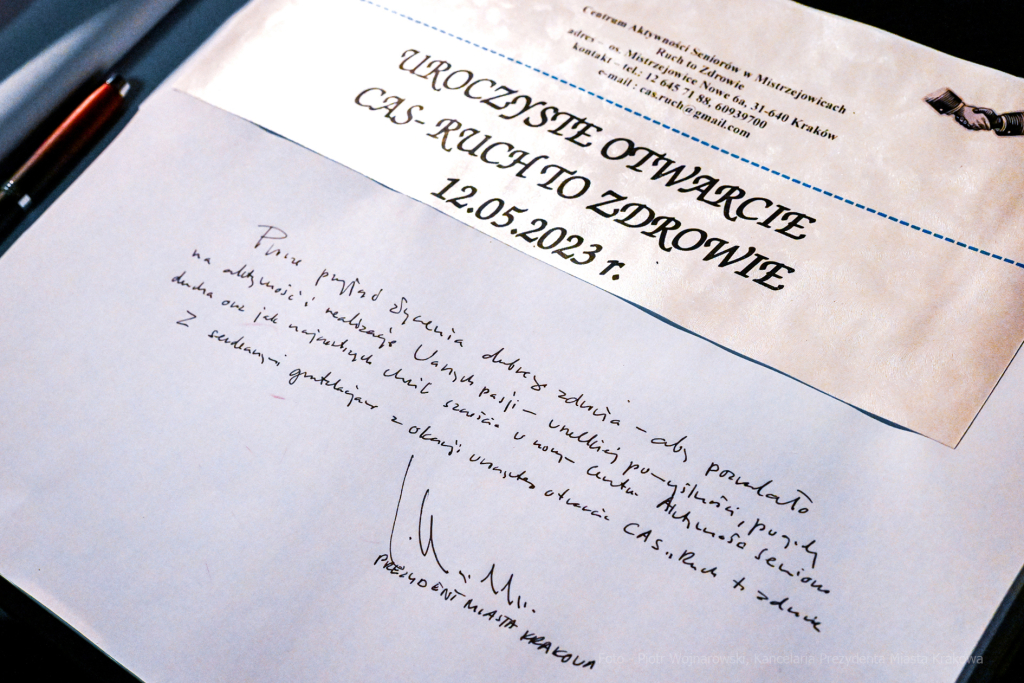 Centrum Aktywności Seniorów w Mistrzejowicach
Ruch to Zdrowie
adres – os. Mistrzejowice Nowe 6a, 31-640 Kraków
kontakt – tel.: 12 645 71 88, 60939700
e-mail : cas.ruch@gmail.com
UROCZYSTE OTWARCIE
CAS- RUCH TO ZDROWIE
12.05.2023 r.
Proszę przyjąć życzenia dobrego zdrowia – aby pozwalało
na aktywność i realizację Waszych pasji – wszelkiej pomyślności, pogody
ducha oraz jak najwięcej chwil szczęścia w nowym Centrum Aktywności Seniorów
Z serdecznymi gratulacjami
z okazji uroczystego otwarcia CAS „Ruch to zdrowie
PREZYDENT MIASTA KRAKOWA
Foto: Piotr Wojnarowski, Kancelaria Prezydenta Miasta Krakowa